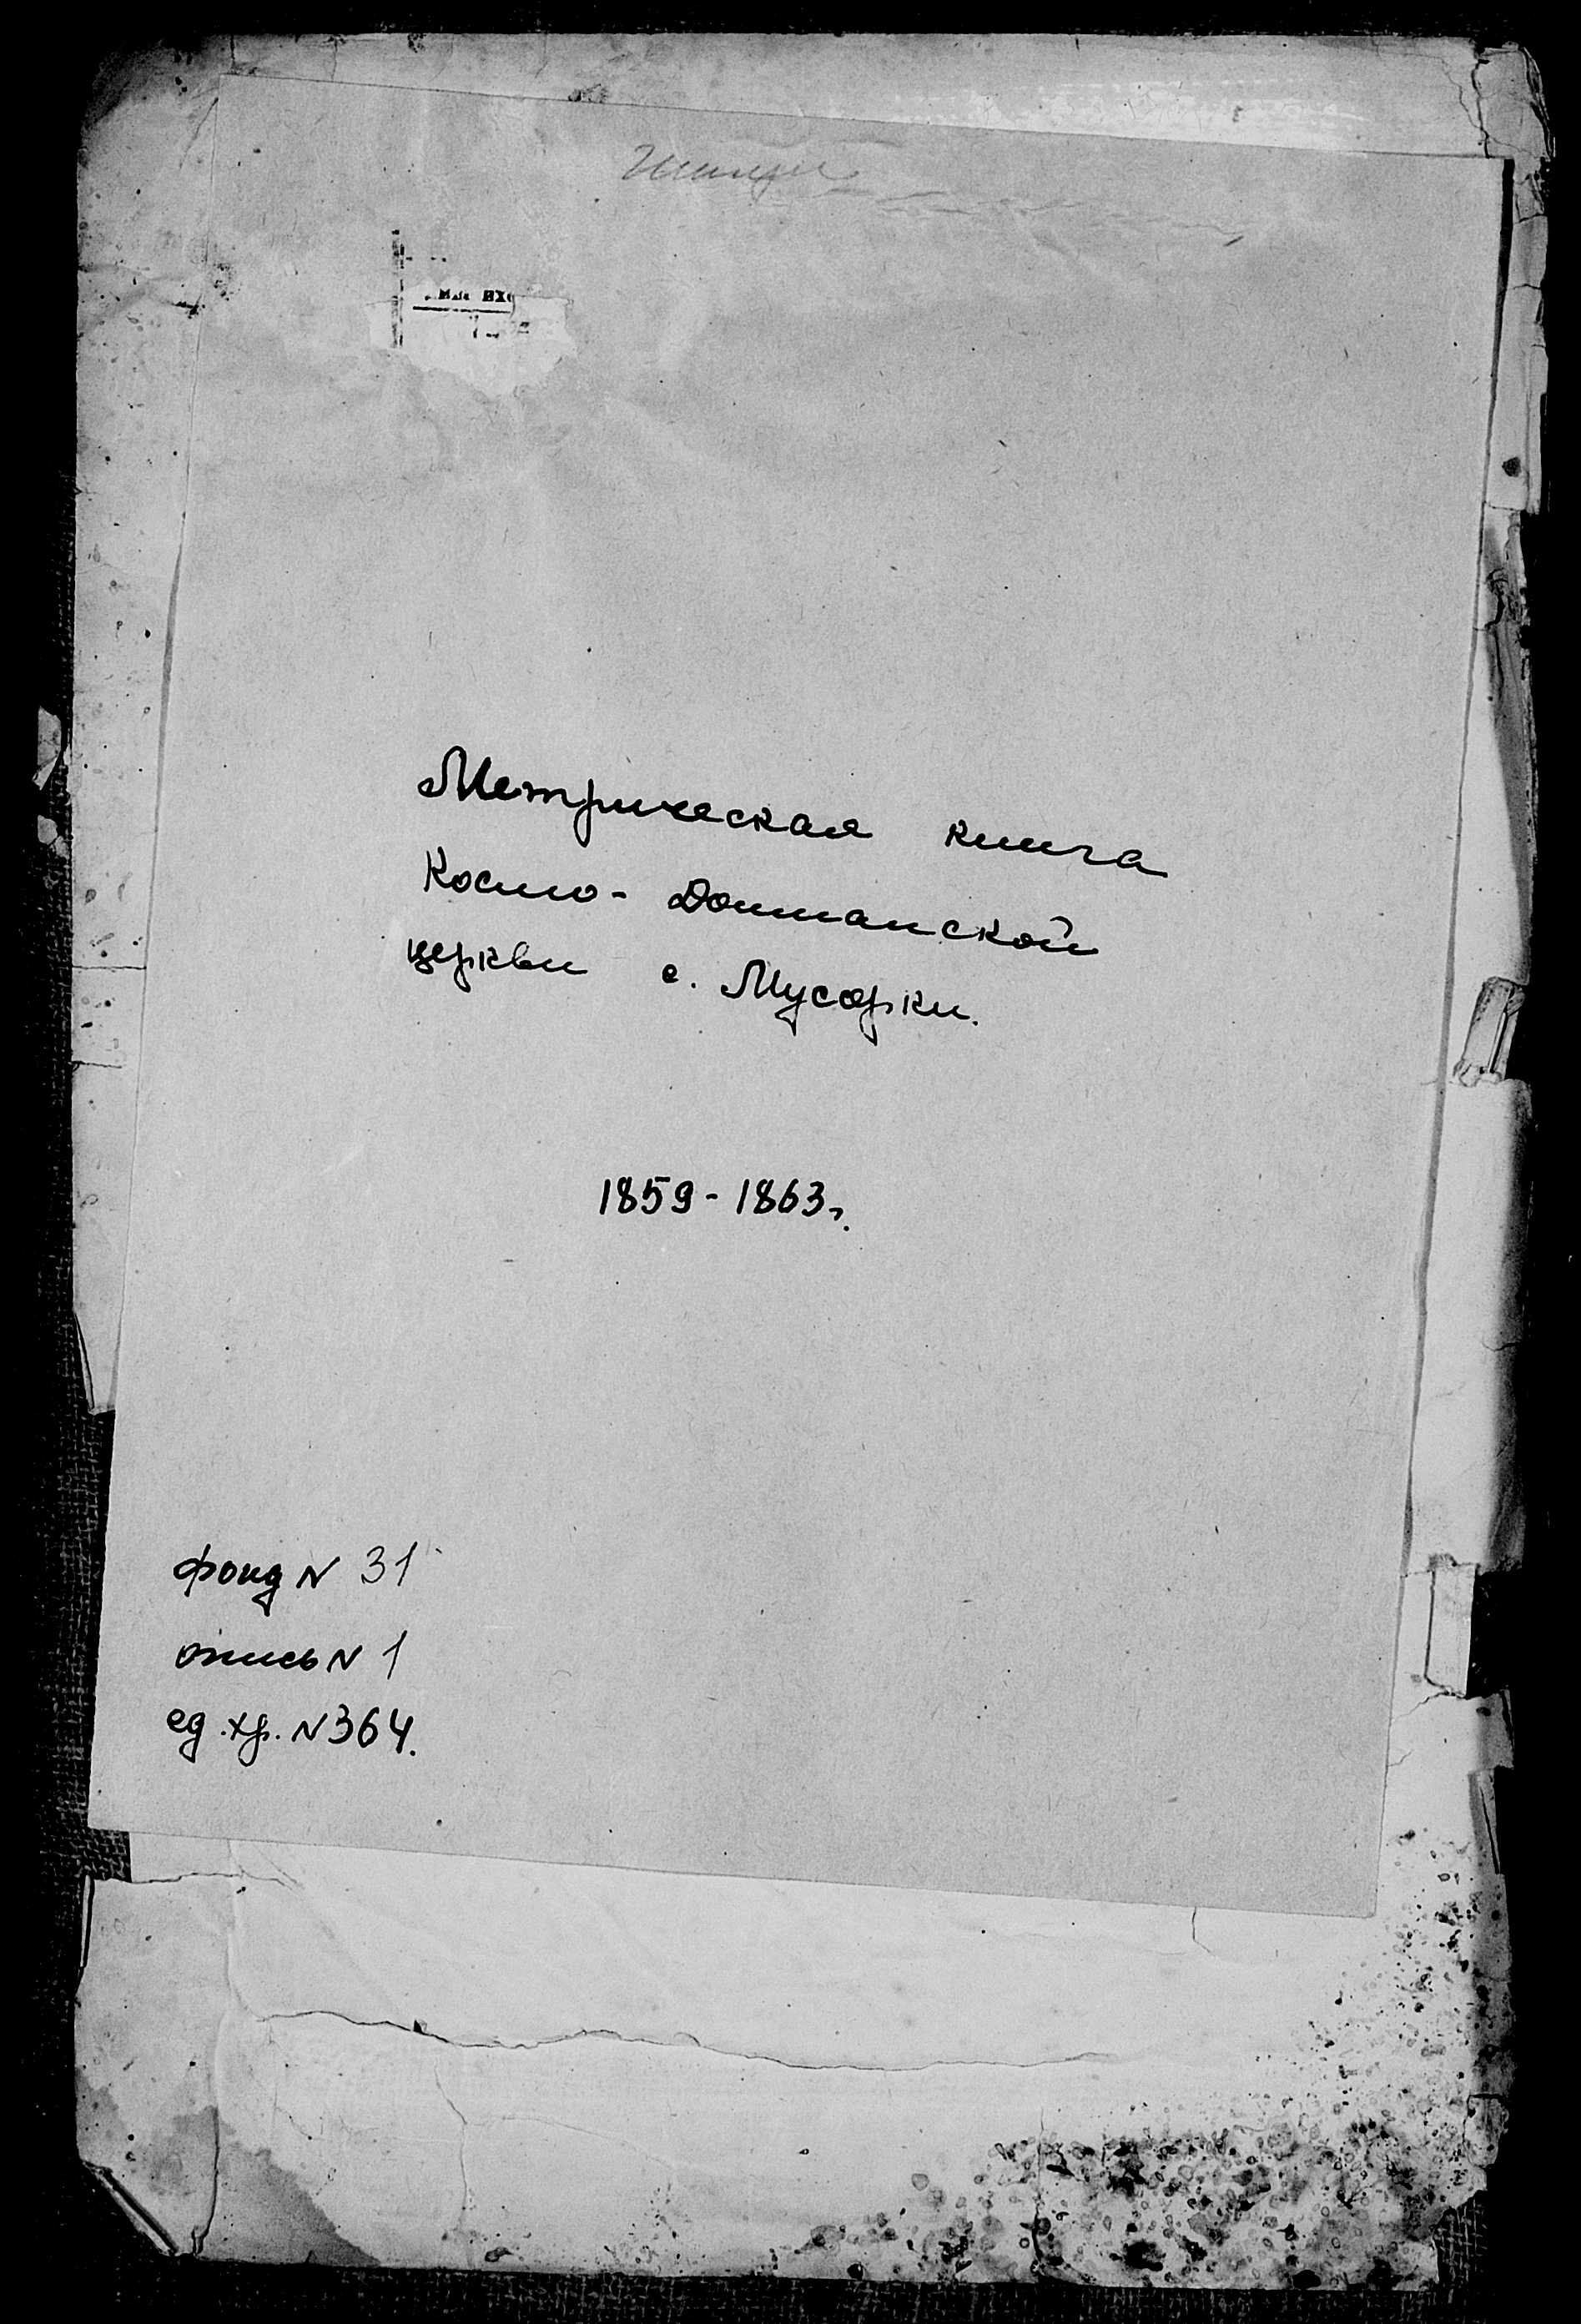 Метрическая книга
Космо-Домианской
церкви с. Мусорки.
1859-1863г.
фонд N 31
опись N 1
ед.хр. N364.